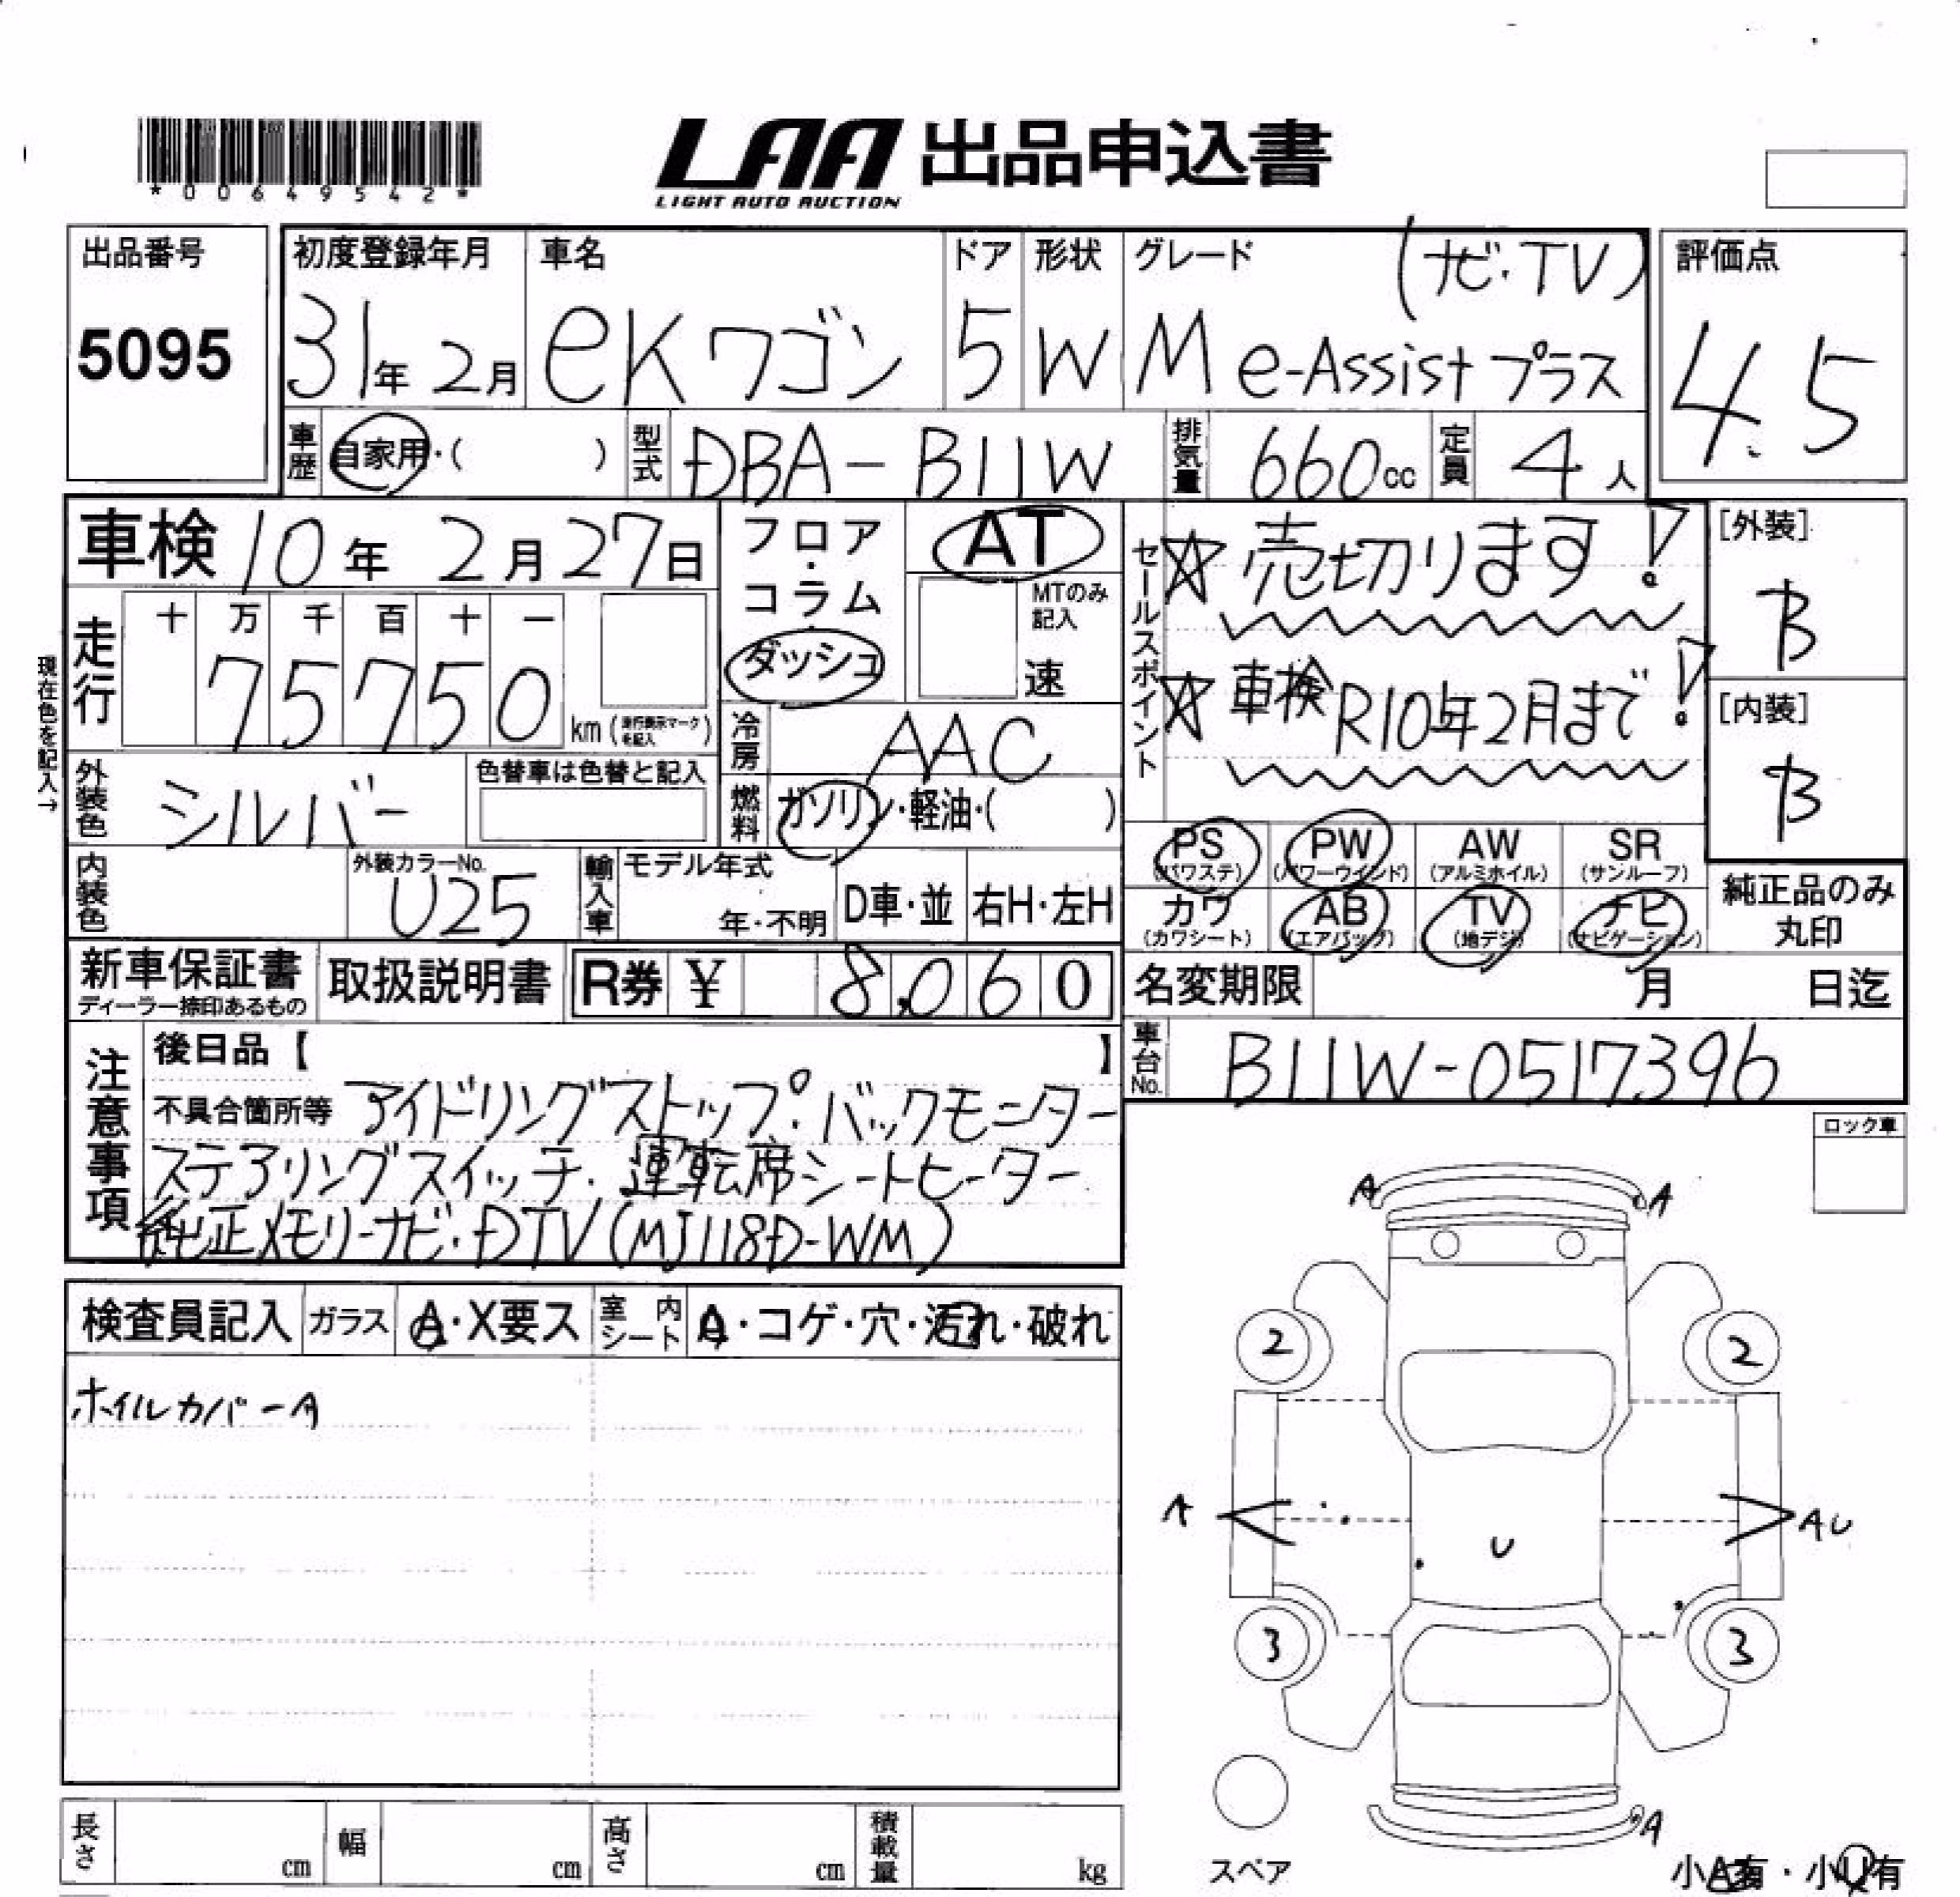 *00649542*
LAA 出品申込書
LIGHT AUTO AUCTION
出品番号
5095
初度登録年月
31年 2月
車名
eKワゴン
ドア
5
形状
W
グレード
(ナビ・TV)
M e-Assistプラス
評価点
4.5
車歴
自家用・( )
型式
DBA-B11W
排気量
660cc
定員
4人
車検 10年 2月27日
現在色を記入→
走行
十 万 千 百 十 一
75750
km (走行表示マークを記入)
フロア・コラム・ダッシュ
AT
MTのみ記入
速
冷房
AAC
燃料
ガソリン・軽油・( )
セールスポイント
☆売切ります!
☆車検R10年2月まで!
[外装]
B
[内装]
B
外装色
シルバー
色替車は色替と記入
内装色
外装カラーNo.
U25
輸入車
モデル年式
年・不明
D車・並
右H・左H
PS (パワステ)
PW (パワーウインド)
AW (アルミホイル)
SR (サンルーフ)
カワ (カワシート)
AB (エアバッグ)
TV (地デジ)
ナビ (ナビゲーション)
純正品のみ丸印
新車保証書
ディーラー捺印あるもの
取扱説明書
R券 ¥ 8,060
名変期限 月 日迄
車台No.
B11W-0517396
注意事項
後日品【 】
不具合箇所等 アイドリングストップ・バックモニター
ステアリングスイッチ・運転席シートヒーター
純正メモリーナビ・DTV(MJ118D-WM)
ロック車
検査員記入
ガラス
A・X要ス
室内シート
A・コゲ・穴・汚れ・破れ
ホイルカバーA
A A
2 2
A U AU
3 3
A
スペア
小A有・小U有
長さ cm
幅 cm
高さ cm
積載量 kg